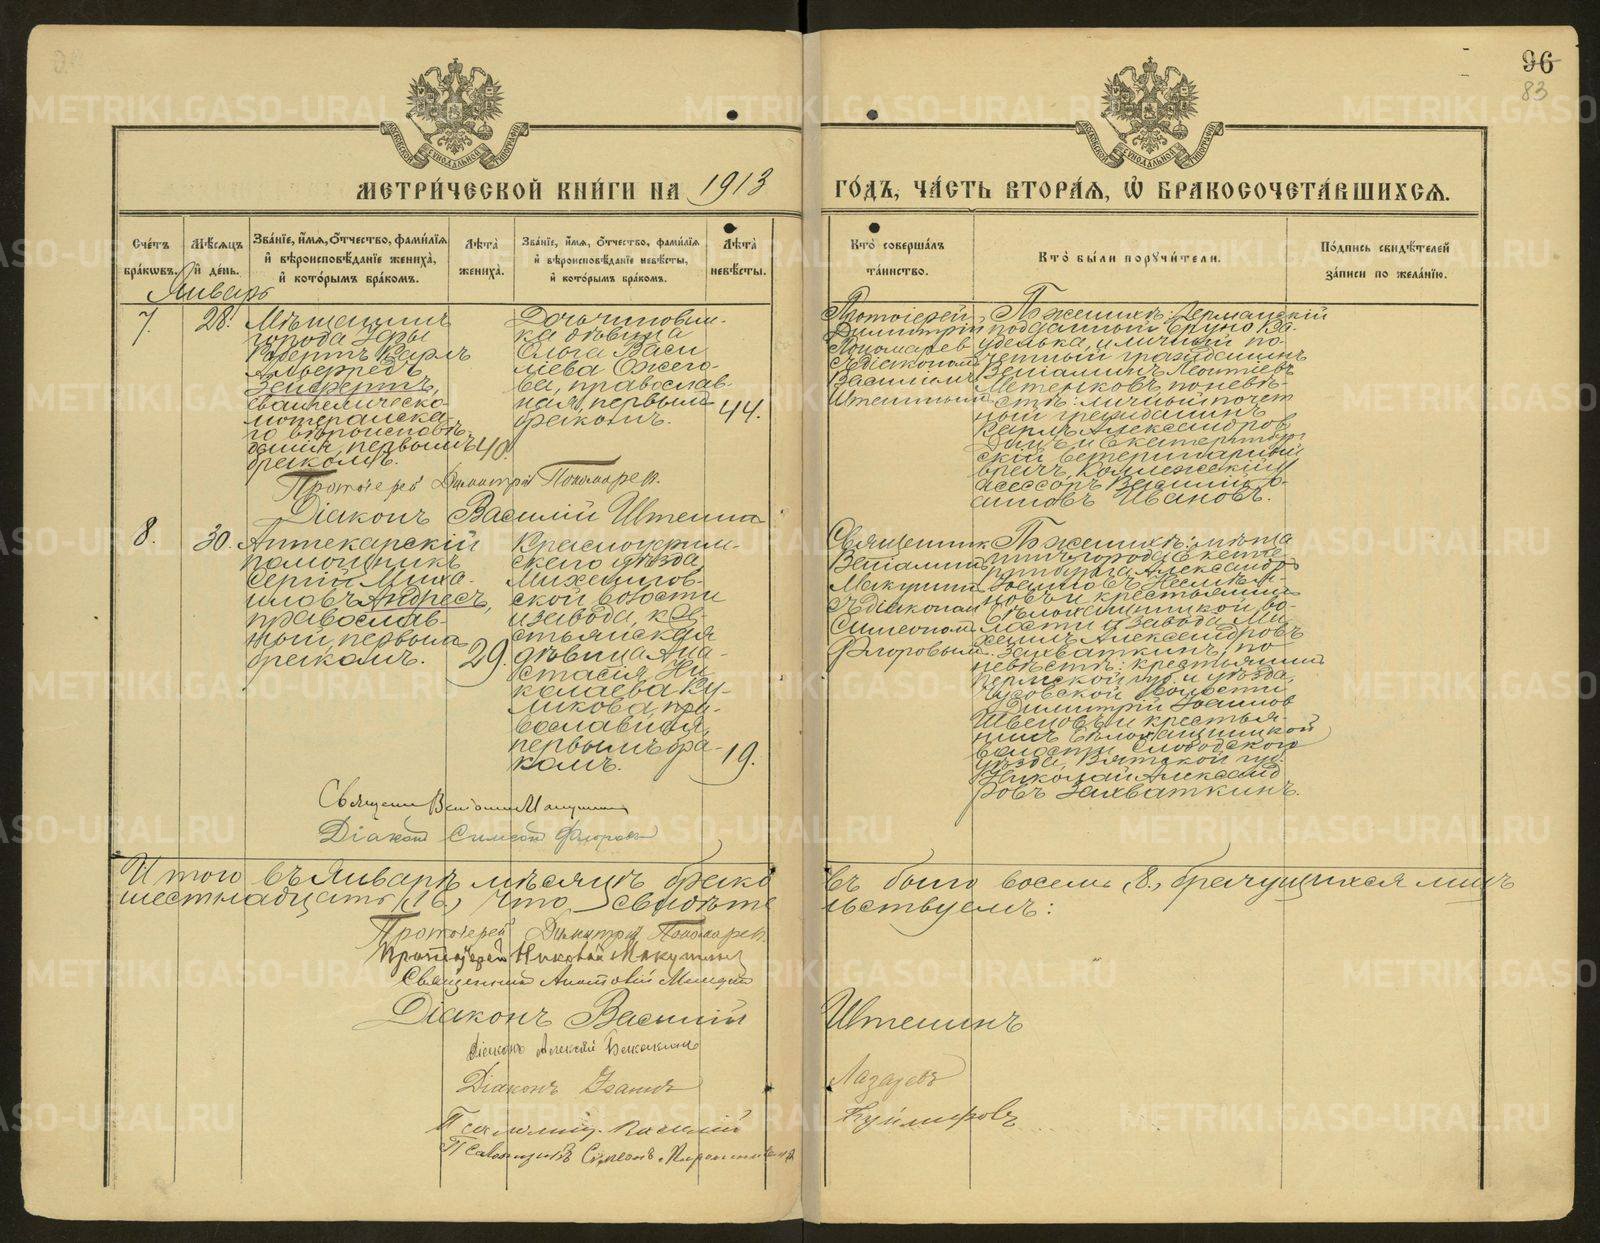 96
83
МЕТРИ́ЧЕСКОЙ КНИ́ГИ НА 1913 ГО́ДЪ, ЧА́СТЬ ВТОРА́Я, Ѽ БРАКОСОЧЕТА́ВШИХСЯ.
Сче́тъ бра́кѡвъ.
Мѣ́сяцъ и҆ де́нь.
Зва́нїе, и҆́мя, о҆́тчество, фами́лїя и҆ вѣроисповѣ́данїе жениха̀, и҆ кото́рымъ бра́комъ.
Лѣ́та жениха̀.
Зва́нїе, и҆́мя, о҆́тчество, фами́лїя и҆ вѣроисповѣ́данїе невѣ́сты, и҆ кото́рымъ бра́комъ.
Лѣ́та невѣ́сты.
Кто̀ соверша́лъ та́инство.
Кто̀ бы́ли поручи́тели.
По́дпись свидѣ́телей за́писи по жела́нїю.
Январь
7.
28.
Мѣщанинъ
города Уфы
Робертъ Карлъ
Альфредъ
Зейфертъ,
евангелическо-
лютеранска-
го вѣроисповѣ-
данія, первымъ
бракомъ.
40.
Дочь чиновни-
ка дѣвица
Ольга Васи
ліева Ожего-
ва, православ-
ная, первымъ
бракомъ.
44.
Протоіерей
Димитрій
Пономарев
съ діакономъ
Василіемъ
Штеннымъ
По женихѣ: Германскій
подданный Бруно Ка-
уделька, и личный по-
четный гражданинъ
Веніаминъ Леонтіевъ
Метенковъ, по невѣ-
стѣ: личный почет
ный гражданинъ
Карлъ Александров
и Екатеринбург
скій ветеринарный
врачъ, Коллежскій
асессоръ Василій
Ивановъ.
Протоіерей Димитрій Пономарев.
Діаконъ Василій Штеннъ
8.
30.
Аптекарскій
помощникъ
Сергій Миха-
иловъ Андресъ,
православ-
ный, первымъ
бракомъ.
29.
Красноуфим-
скаго уѣзда,
Михайлов-
ской волости
и завода, кре-
стьянская
дѣвица Ана-
стасія Ни-
колаева Ку-
ликова, пра-
вославная,
первымъ бра-
комъ.
19.
Священник
Веніаминъ
Макушинъ
съ діакономъ
Симеономъ
Флоровымъ
По женихѣ: мѣща
нинъ города Екате-
ринбурга Александръ
и крестьянинъ
Бѣлохолуницкой во-
лости и завода Ми-
хаилъ Александровъ
Захваткинъ; по
невѣстѣ: крестьянинъ
Пермской губ. и уѣзда,
Чусовской волости
Димитрій Іоаннов
Швецовъ и крестья-
нинъ Бѣлохолуницкой
волости, Слободского
уѣзда, Вятской губ.
Николай Александ
ровъ Захваткинъ.
Священникъ Веніаминъ Макушинъ
Діаконъ Симеонъ Флоровъ
Итого въ Январѣ мѣсяцѣ браковъ было восемь, 8, брачущихся лицъ
шестнадцать, 16, что свидѣтельствуемъ:
Протоіерей Димитрій Пономарев.
Протоіерей Николай Макушинъ
Священникъ
Діаконъ Василій Штеннъ
Діаконъ Алексій
Діаконъ Іоаннъ Лазаревъ
Псаломщ. Василій
Псаломщикъ Симеонъ
METRIKI.GASO-URAL.RU